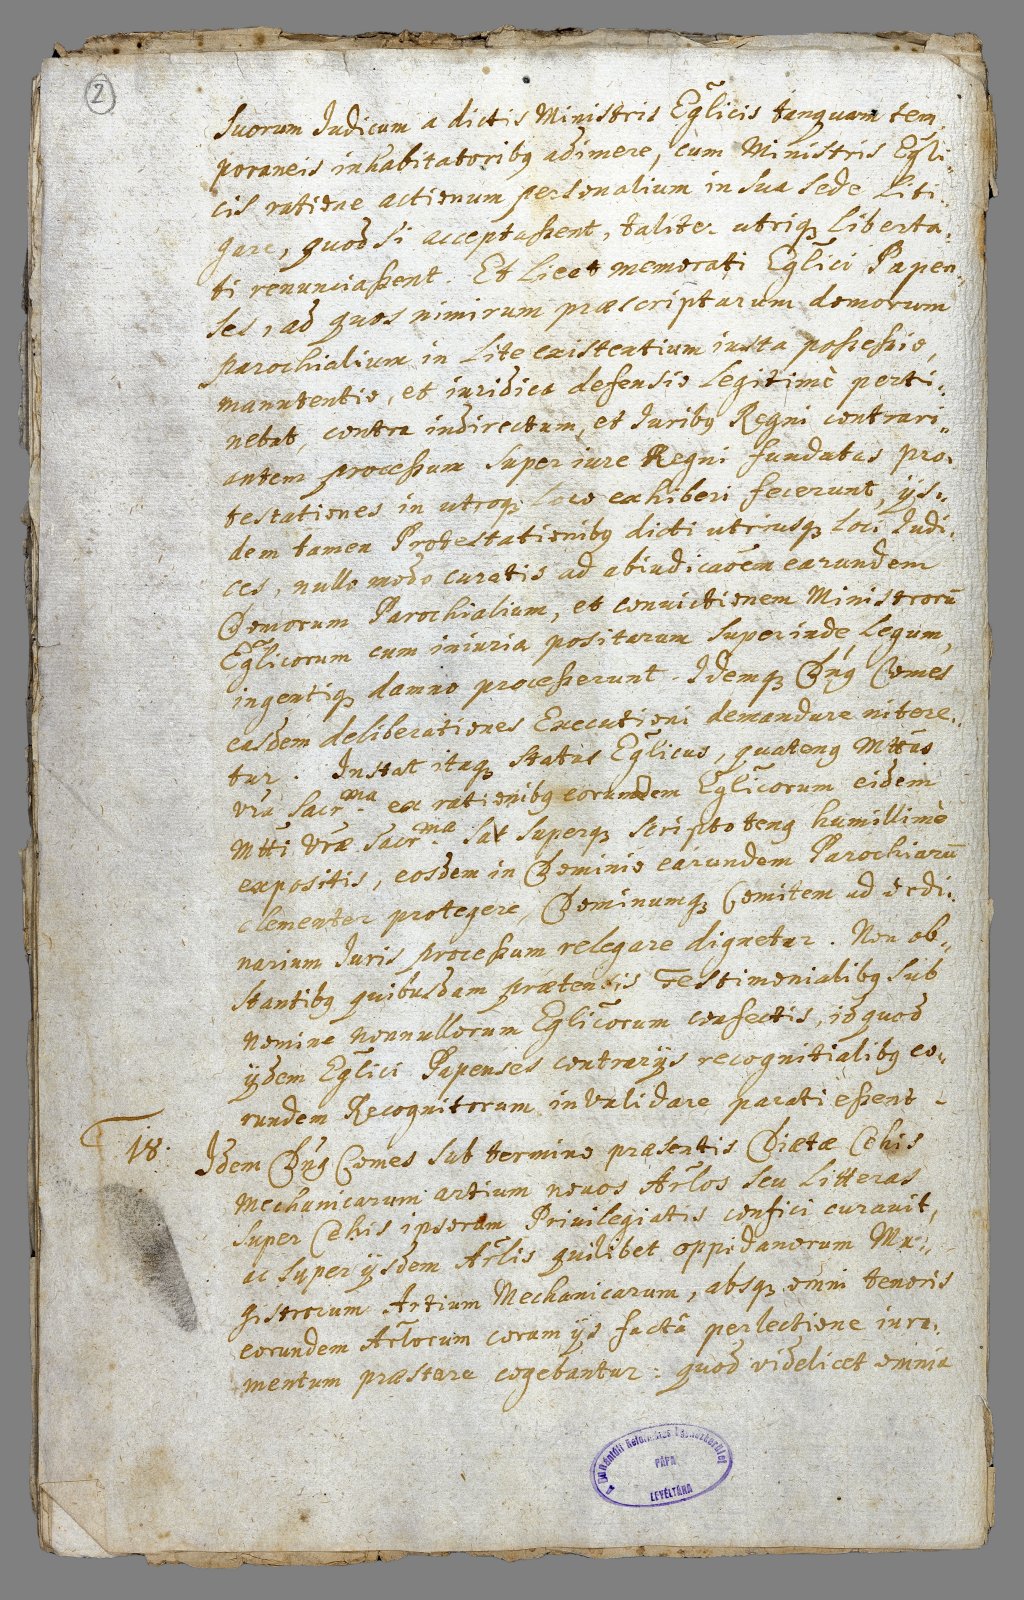 2
suorum Judicum a dictis Ministris Egl̃icis tanquam tem„
poraneis inhabitatoribq adimere, cum Ministris Egl̃i„
cis ratione actionum personalium in sua sede Liti„
gare, quod si acceptassent, taliter utriqꝫ liberta„
ti renunciassent. Et licet memorati Egl̃ici Papen„
ses, ad quos nimirum præscriptarum domorum
parochialium in lite existentium iusta possessio,
manutentio, et iuridica defensio legitimè perti„
nebat, contra indirectum, et Juribq Regni contrari„
antem processum super iure Regni fundatas pro„
testationes in utroqꝫ Loco exhiberi fecerunt, ijs„
dem tamen Protestationibq dicti utriusqꝫ loci Judi„
ces, nullo modo curatis ad abiudicaõem earundem
Domorum Parochialium, et convictionem Ministrorũ
Egl̃icorum cum iniuria positarum superinde Legum,
ingentiqꝫ damno processerunt. Idemqꝫ Dn̑q Comes
easdem deliberationes Executioni demandare nitere„
tur. Instat itaqꝫ status Egl̃icus, quatenq Mtt̃as
Vrã Sacr.ma ex rationibq eorundem Egl̃icorum eidem
Mtt̃i Vræ Sacr.mæ sat superqꝫ scripto tenq humillimè
expositis, eosdem in Dominio earundem Parochiarũ
clementer protegere, Dominumqꝫ Comitem ad ordi„
narium Juris processum relegare dignetur. Non ob„
stantibq quibusdam prætensis Testimonialibq sub
nomine nonnullorum Egl̃icorum confectis, id quod
ijdem Egl̃ici Papenses contrarijs recognitialibq eo„
rundem Recognitorum invalidare parati essent –
18. Idem Dn̑q Comes sub termino præsentis Diætæ Cehis
Mechanicarum artium novos Arl̃os seu Litteras
super Cehis ipsorum Privilegiatis confici curavit,
ac super ijsdem Arl̃is quilibet oppidanorum Ma„
gistrorum Artium Mechanicarum, absqꝫ omni tenoris
eorundem Arl̃orum coram ijs factâ perlectione iura„
mentum præstare cogebantur: quod videlicet omnia
A Dunántúli Református Egyházkerület
PÁPA
LEVÉLTÁRA